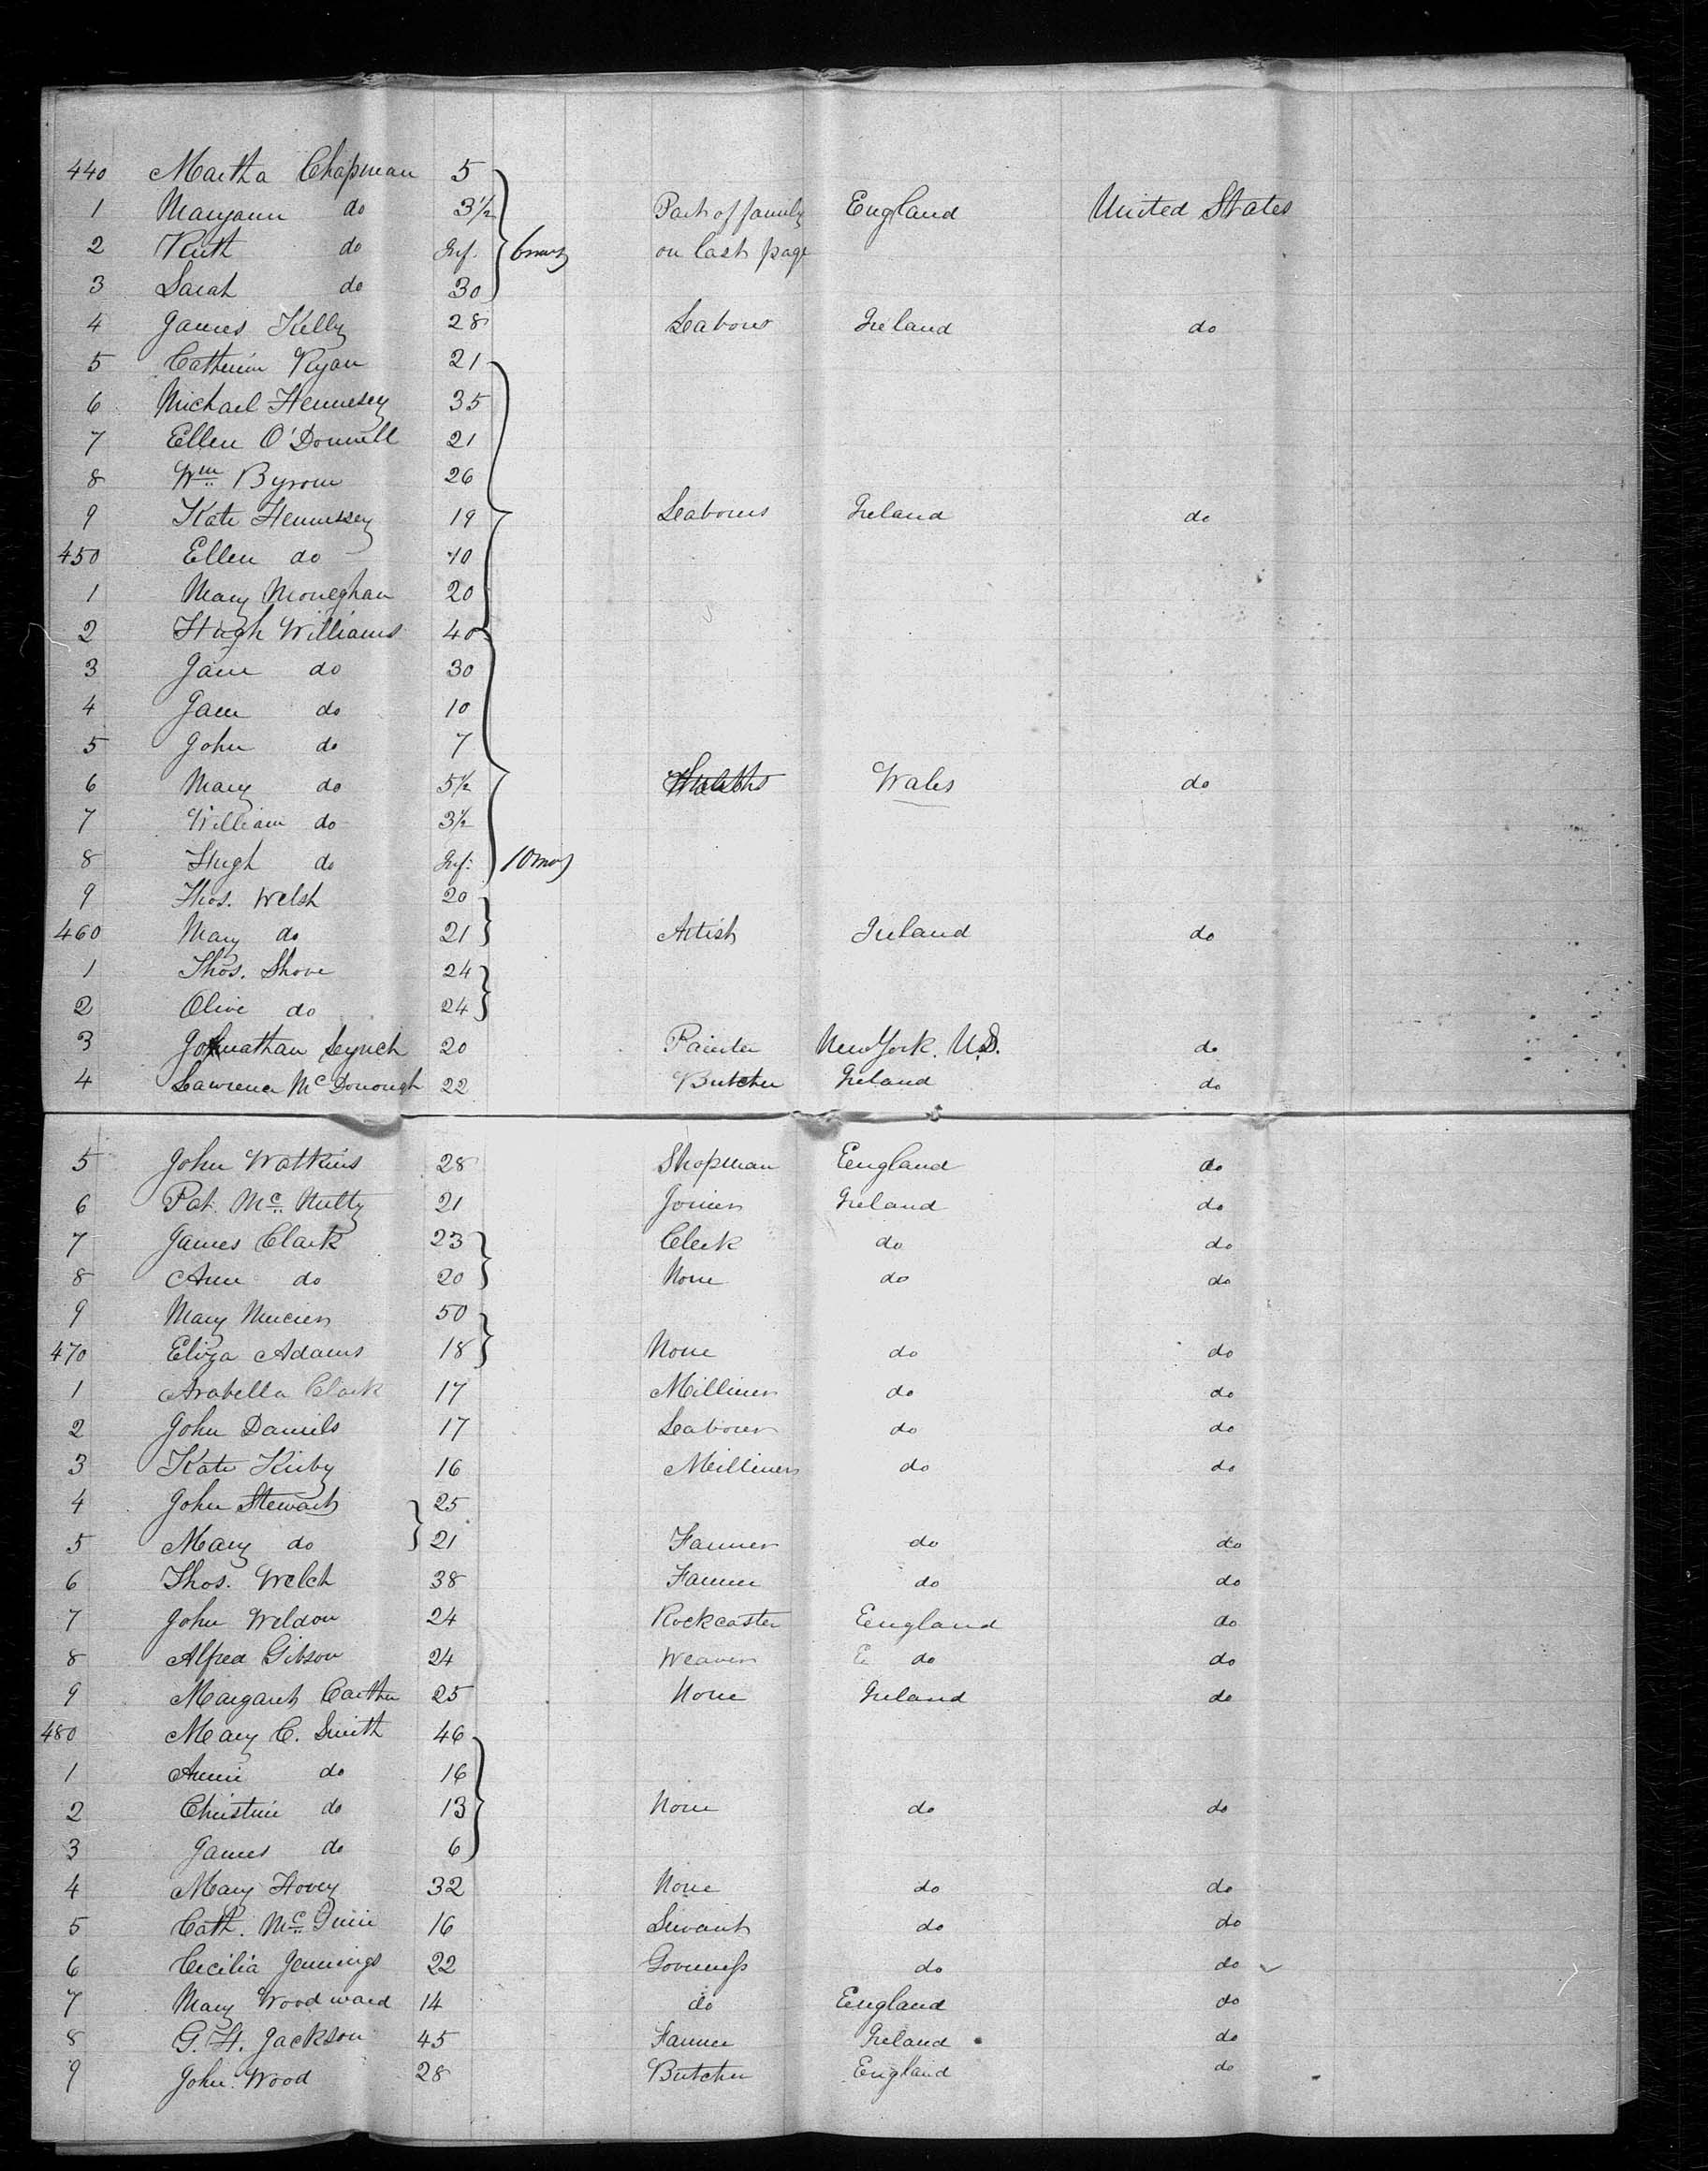 440 Martha Chapman 5
1 Maryann do 3½ Part of family England United States
2 Ruth do Inf. 6mos on last page
3 Sarah do 30
4 James Kelly 28 Labour Ireland do
5 Catherin Ryan 21
6 Michael Hennesey 35
7 Ellen O'Donnell 21
8 Wm Byrom 26
9 Kate Hennesey 19 Labours Ireland do
450 Ellen do 10
1 Mary Moneghan 20
2 Hugh Williams 40
3 Jane do 30
4 Jane do 10
5 John do 7
6 Mary do 5½ Wales do
7 William do 3½
8 Hugh do Inf. 10mos
9 Thos. Welsh 20
460 Mary do 21 Artist Ireland do
1 Thos. Shove 24
2 Olive do 24
3 Johnathan Lynch 20 Painter New York. U.S. do
4 Lawrence McDonough 22 Butcher Ireland do
5 John Watkins 28 Shopman England do
6 Pat. Mc Nulty 21 Joiner Ireland do
7 James Clark 23 Clerk do do
8 Ann do 20 None do do
9 Mary 50
470 Eliza Adams 18 None do do
1 Arabella Clark 17 Milliner do do
2 John Daniels 17 Labourer do do
3 Kate Kirby 16 Milliner do do
4 John Stewart 25
5 Mary do 21 Farmer do do
6 Thos. Welch 38 Farmer do do
7 John Weldon 24 England do
8 Alfred Gibson 24 Weaver E do do
9 Margaret 25 None Ireland do
480 Mary C. Smith 46
1 Annie do 16
2 Christine do 13 None do do
3 James do 6
4 Mary Hovey 32 None do do
5 Cath. Mc 16 Servant do do
6 Cecilia Jennings 22 Governess do do
7 Mary Woodward 14 do England do
8 G. H. Jackson 45 Farmer Ireland do
9 John Wood 28 Butcher England do